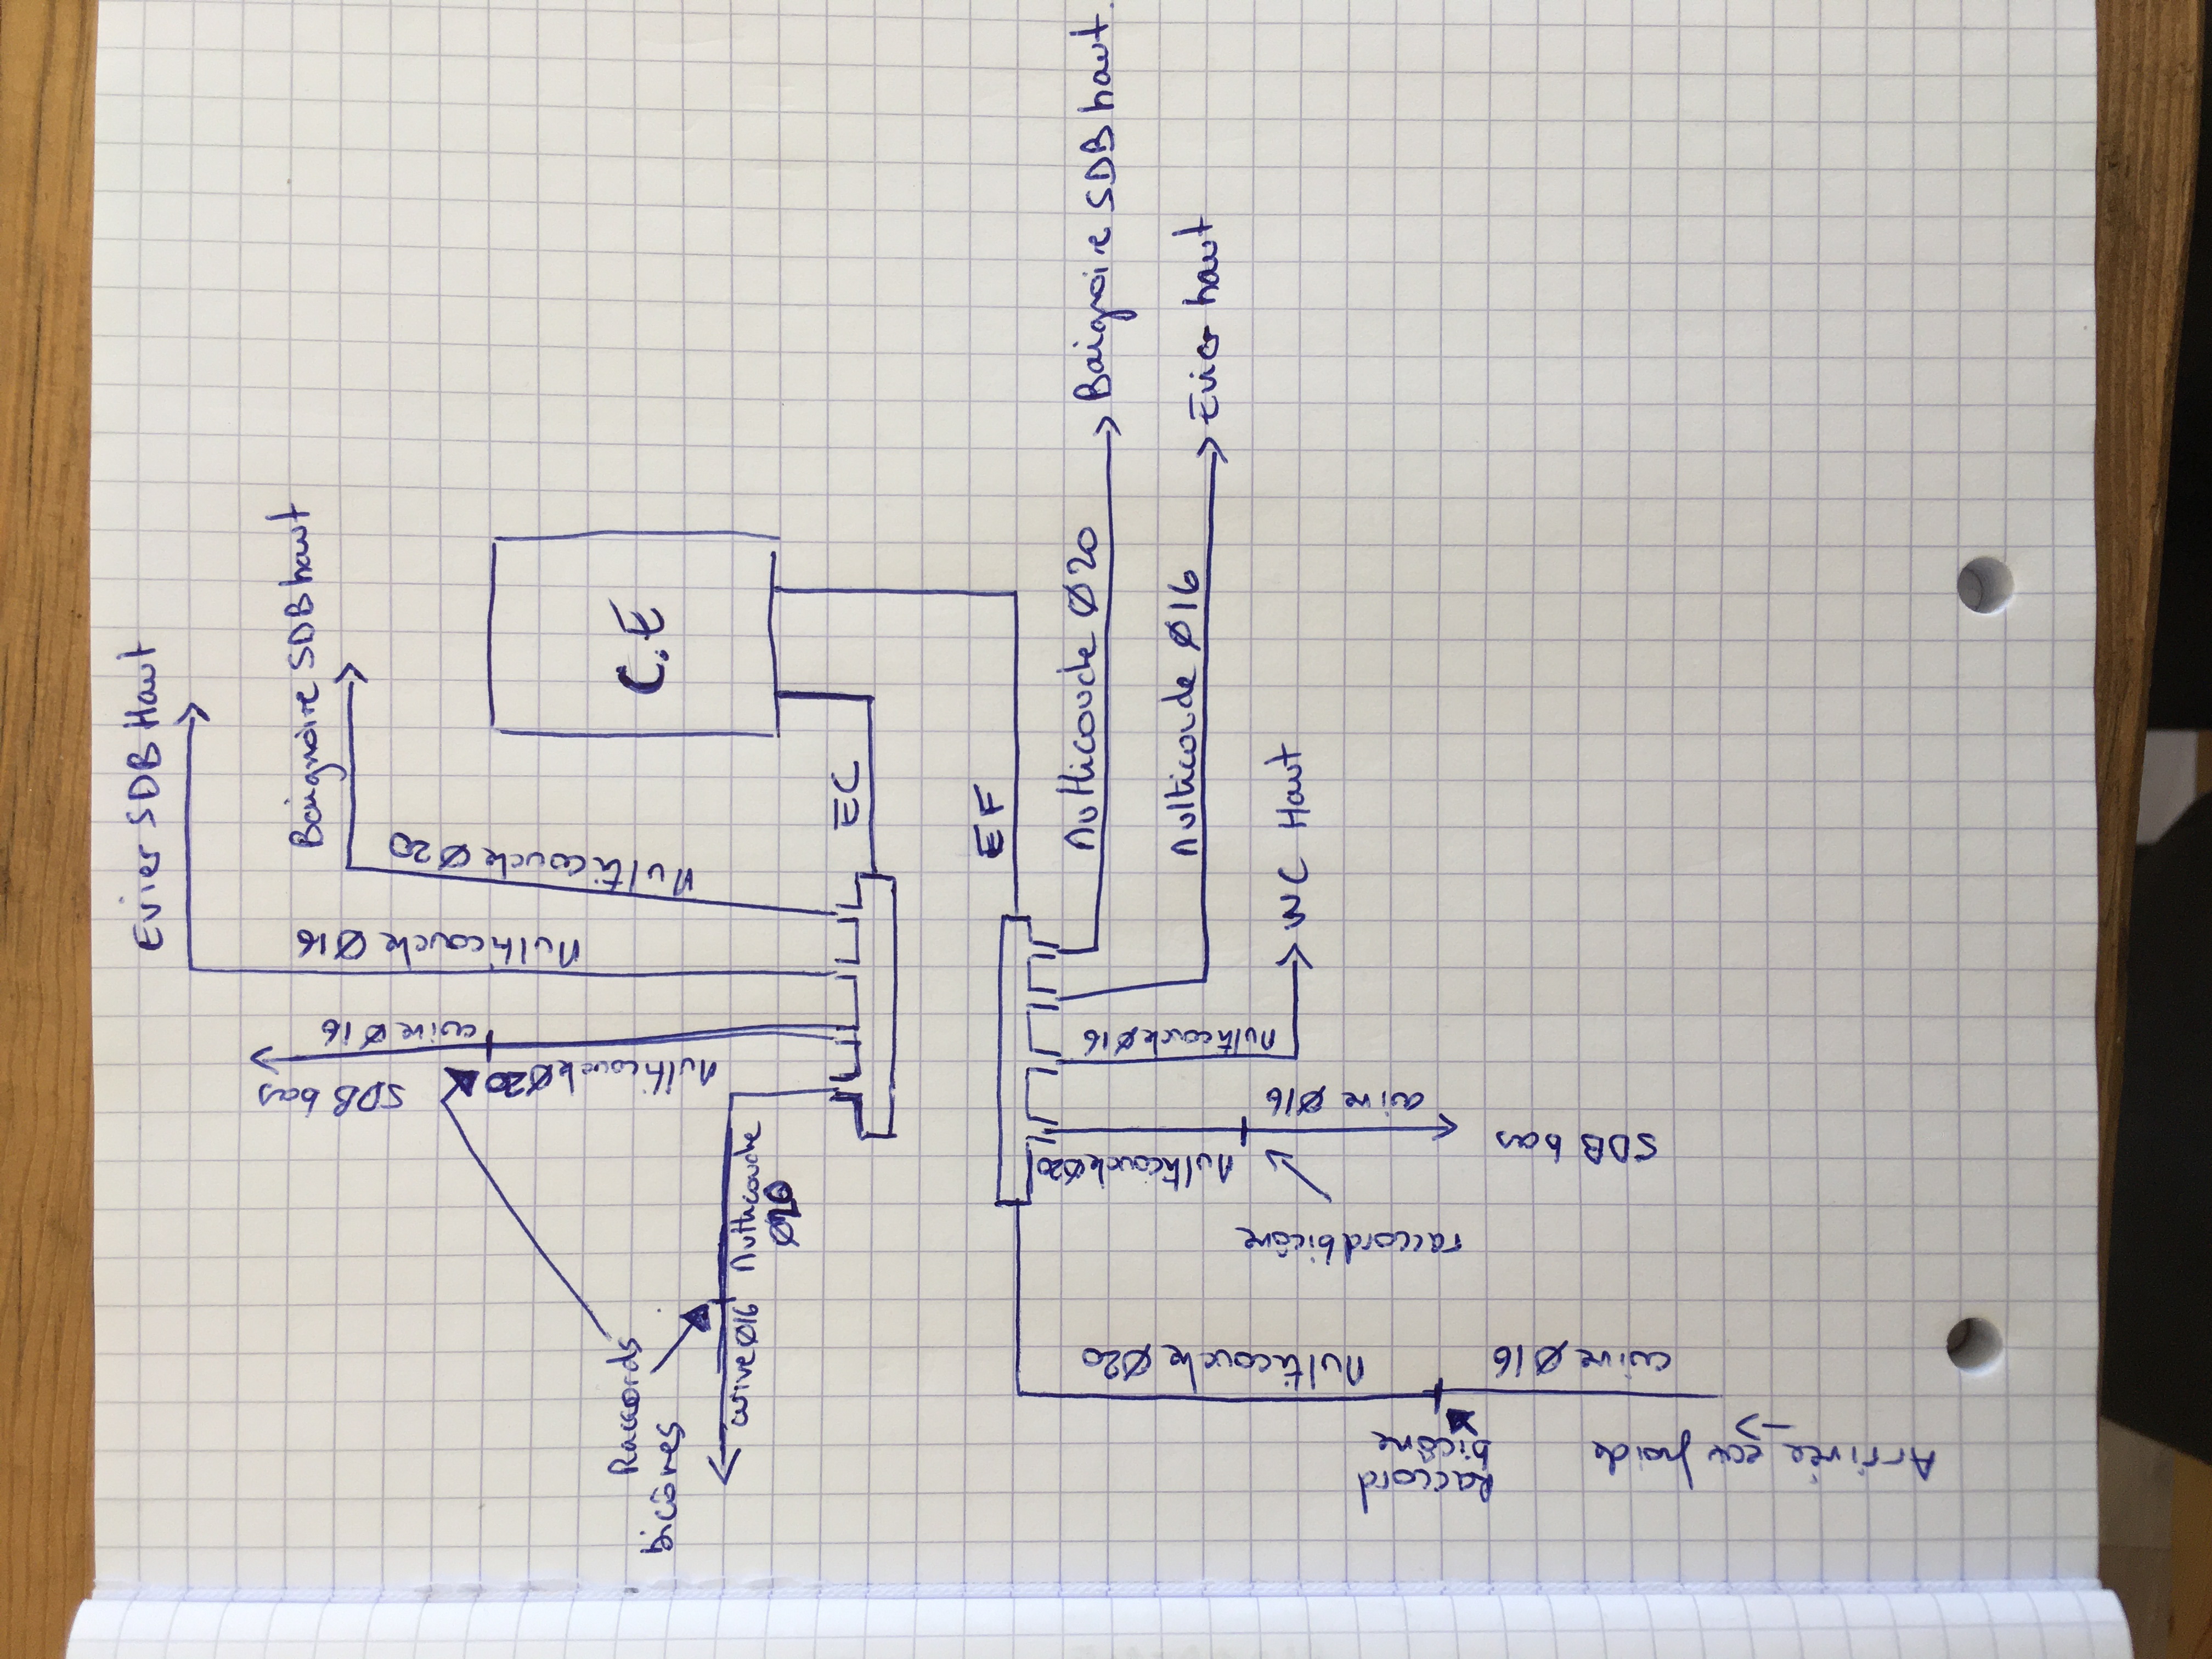 Evier SDB Haut
Baignoire SDB haut
Multicouche Ø20
Multicouche Ø16
cuivre Ø16
SDB bas
Multicouche Ø20
C.E
EC
EF
Multicouche
Ø20
cuivre Ø16
Raccords
bicônes
Multicouche Ø20
Baignoire SDB haut
Multicouche Ø16
Evier haut
Multicouche Ø16
WC Haut
Multicouche Ø20
cuivre Ø16
SDB bas
raccord bicône
Multicouche Ø20
cuivre Ø16
Raccord
bicône
Arrivée eau froide